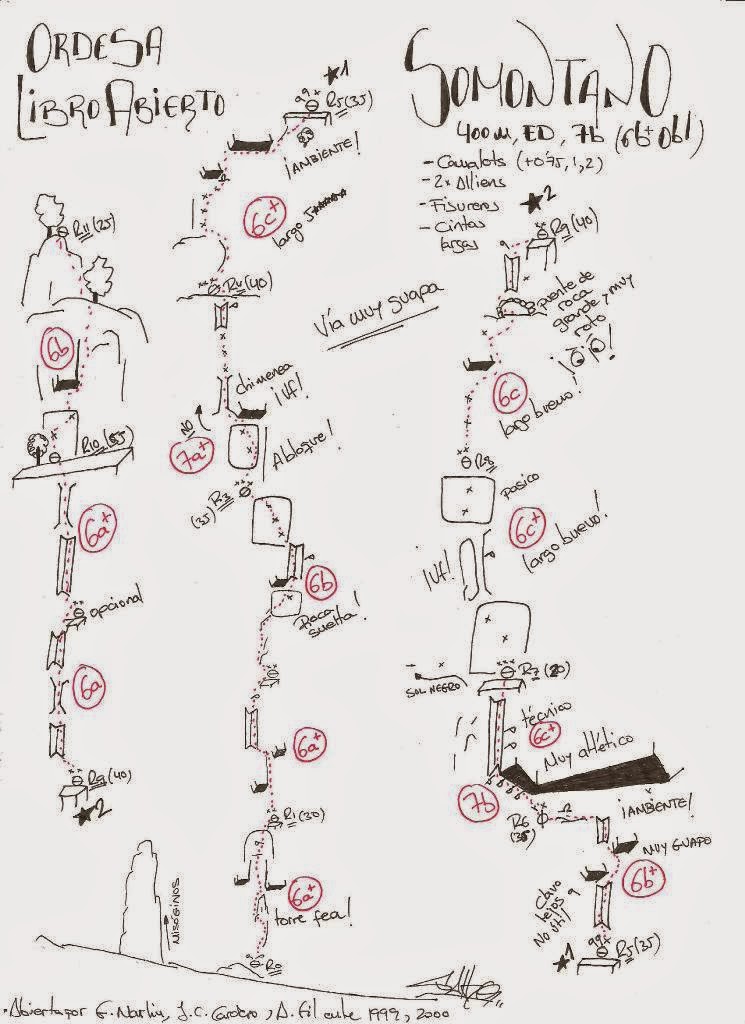 ORDESA
LIBRO ABIERTO
SOMONTANO
400m, ED, 7b (6b+ obl)
- Camalots (+0'75, 1, 2)
- 2x Aliens
- Fisureros
- Cintas
largas
Vía muy guapa
R11 (25)
6b
R10 (55)
6a+
opcional
6a
R9 (40)
★2
★1
R5 (35)
¡AMBIENTE!
6c+
largo
R4 (40)
chimenea
¡Uf!
NO
7a+
A bloque!
R3
(35)
6b
Roca
suelta!
6a+
R1 (30)
6a+
torre fea!
R0
MISÓGINOS
★2
R9 (40)
puente de
roca
grande y muy
roto
6c
largo bueno!
R8
pasico
6c+
largo bueno!
¡Uf!
R7 (20)
SOL NEGRO
técnico
6c+
Muy atlético
7b
R6
(35)
¡AMBIENTE!
MUY GUAPO
6b+
Clavo
lejos
No útil
★1
R5 (35)
Abierta por J.C. 1999, 2000